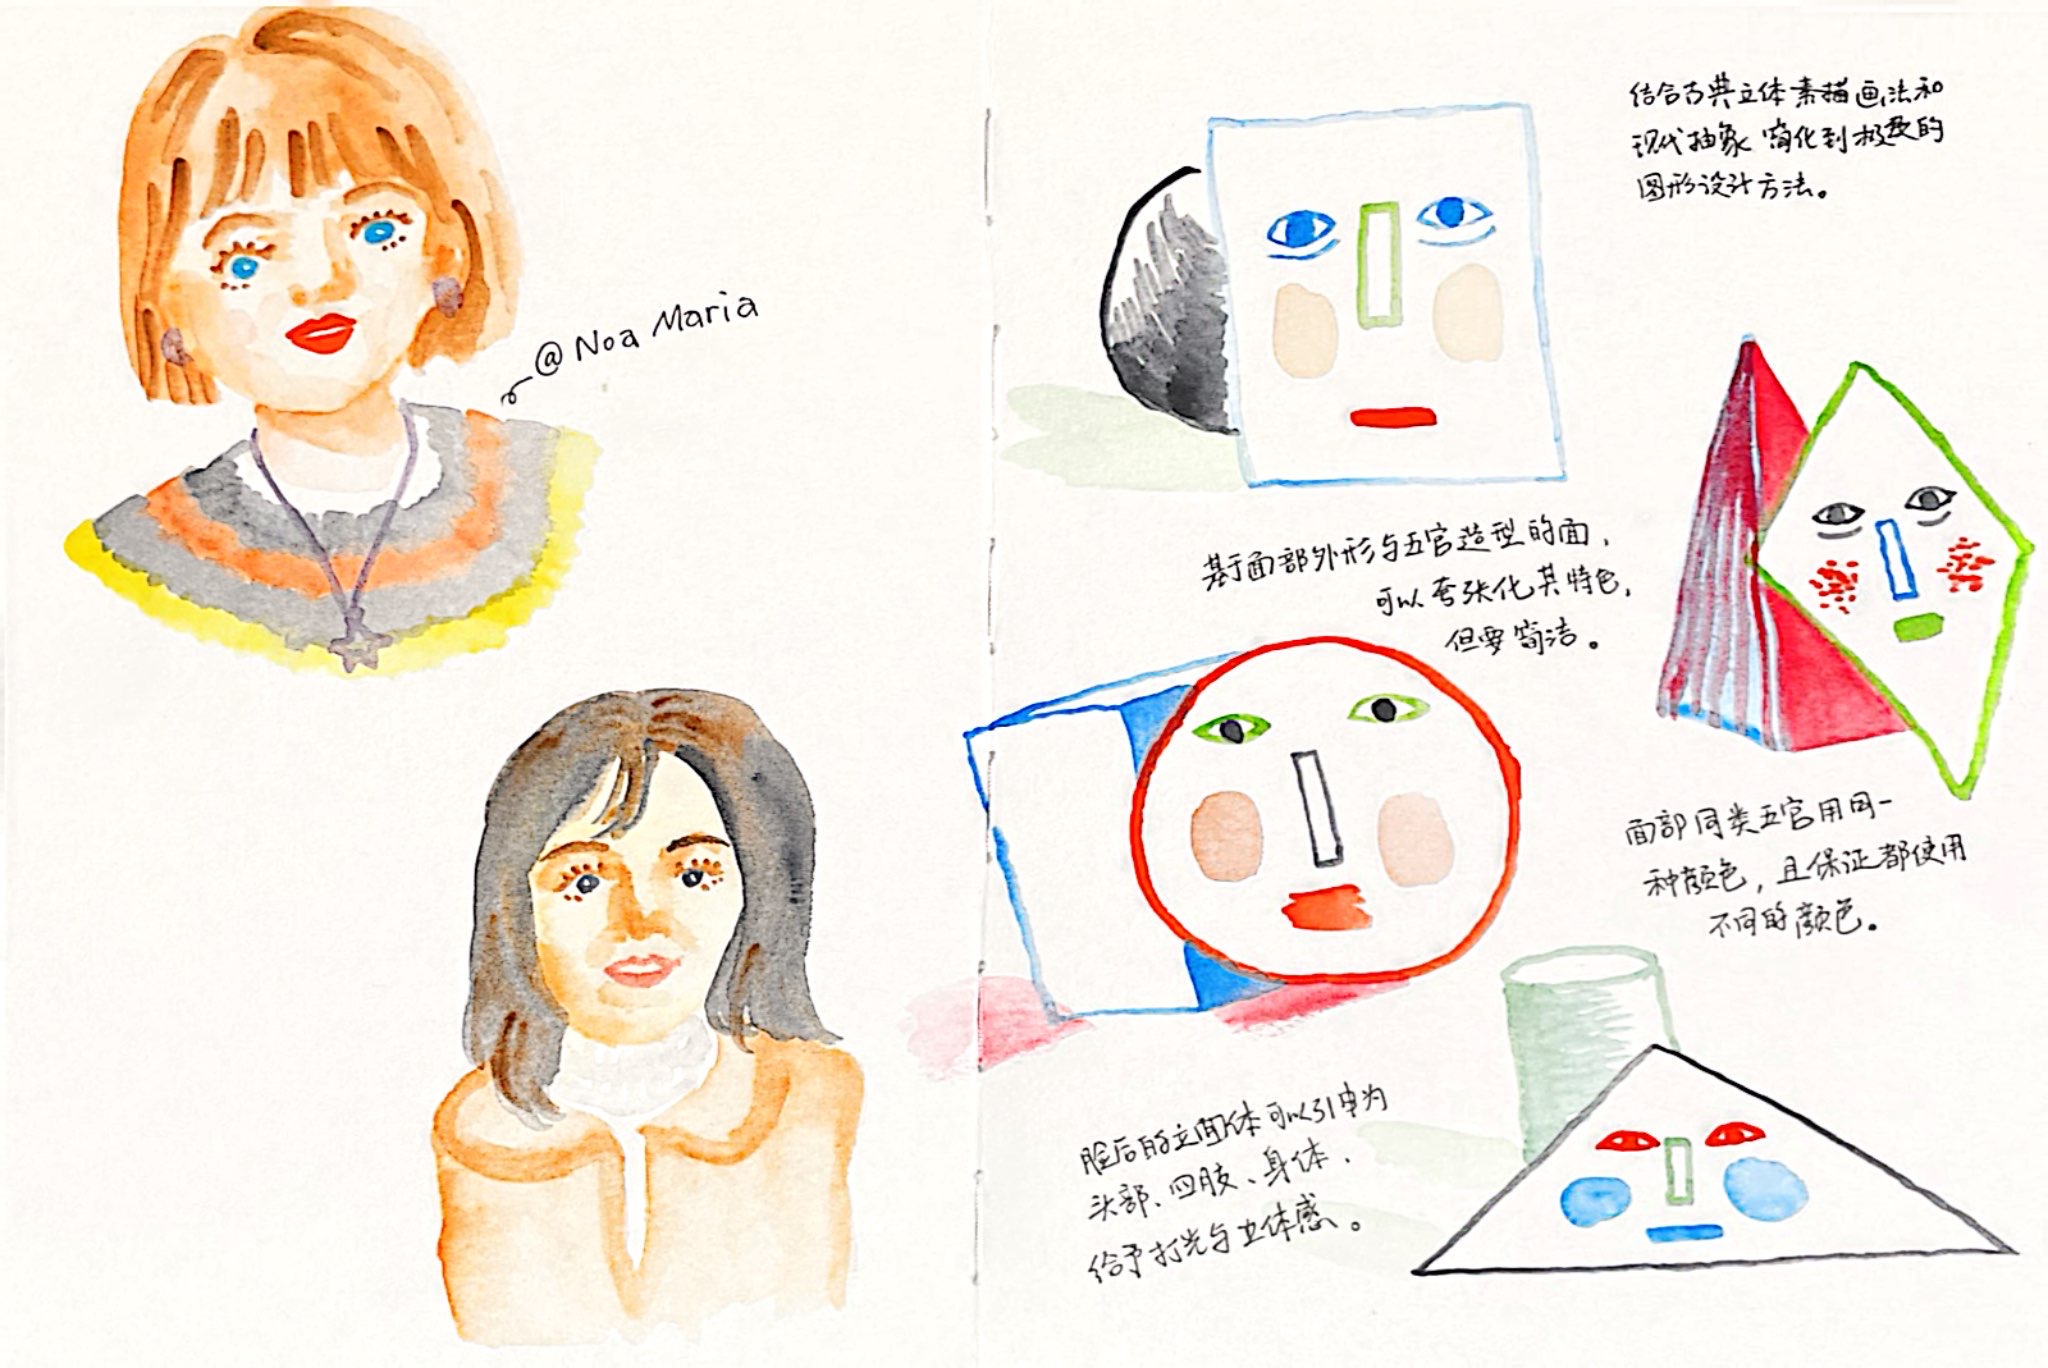 @ Noa Maria
结合古典立体素描画法和
现代抽象简化到极致的
图形设计方法。
基于面部外形与五官造型的面，
可以夸张化其特色，
但要简洁。
面部同类五官用同一
种颜色，且保证都使用
不同的颜色。
脸后的立面体可以引申为
头部、四肢、身体，
给予打光与立体感。